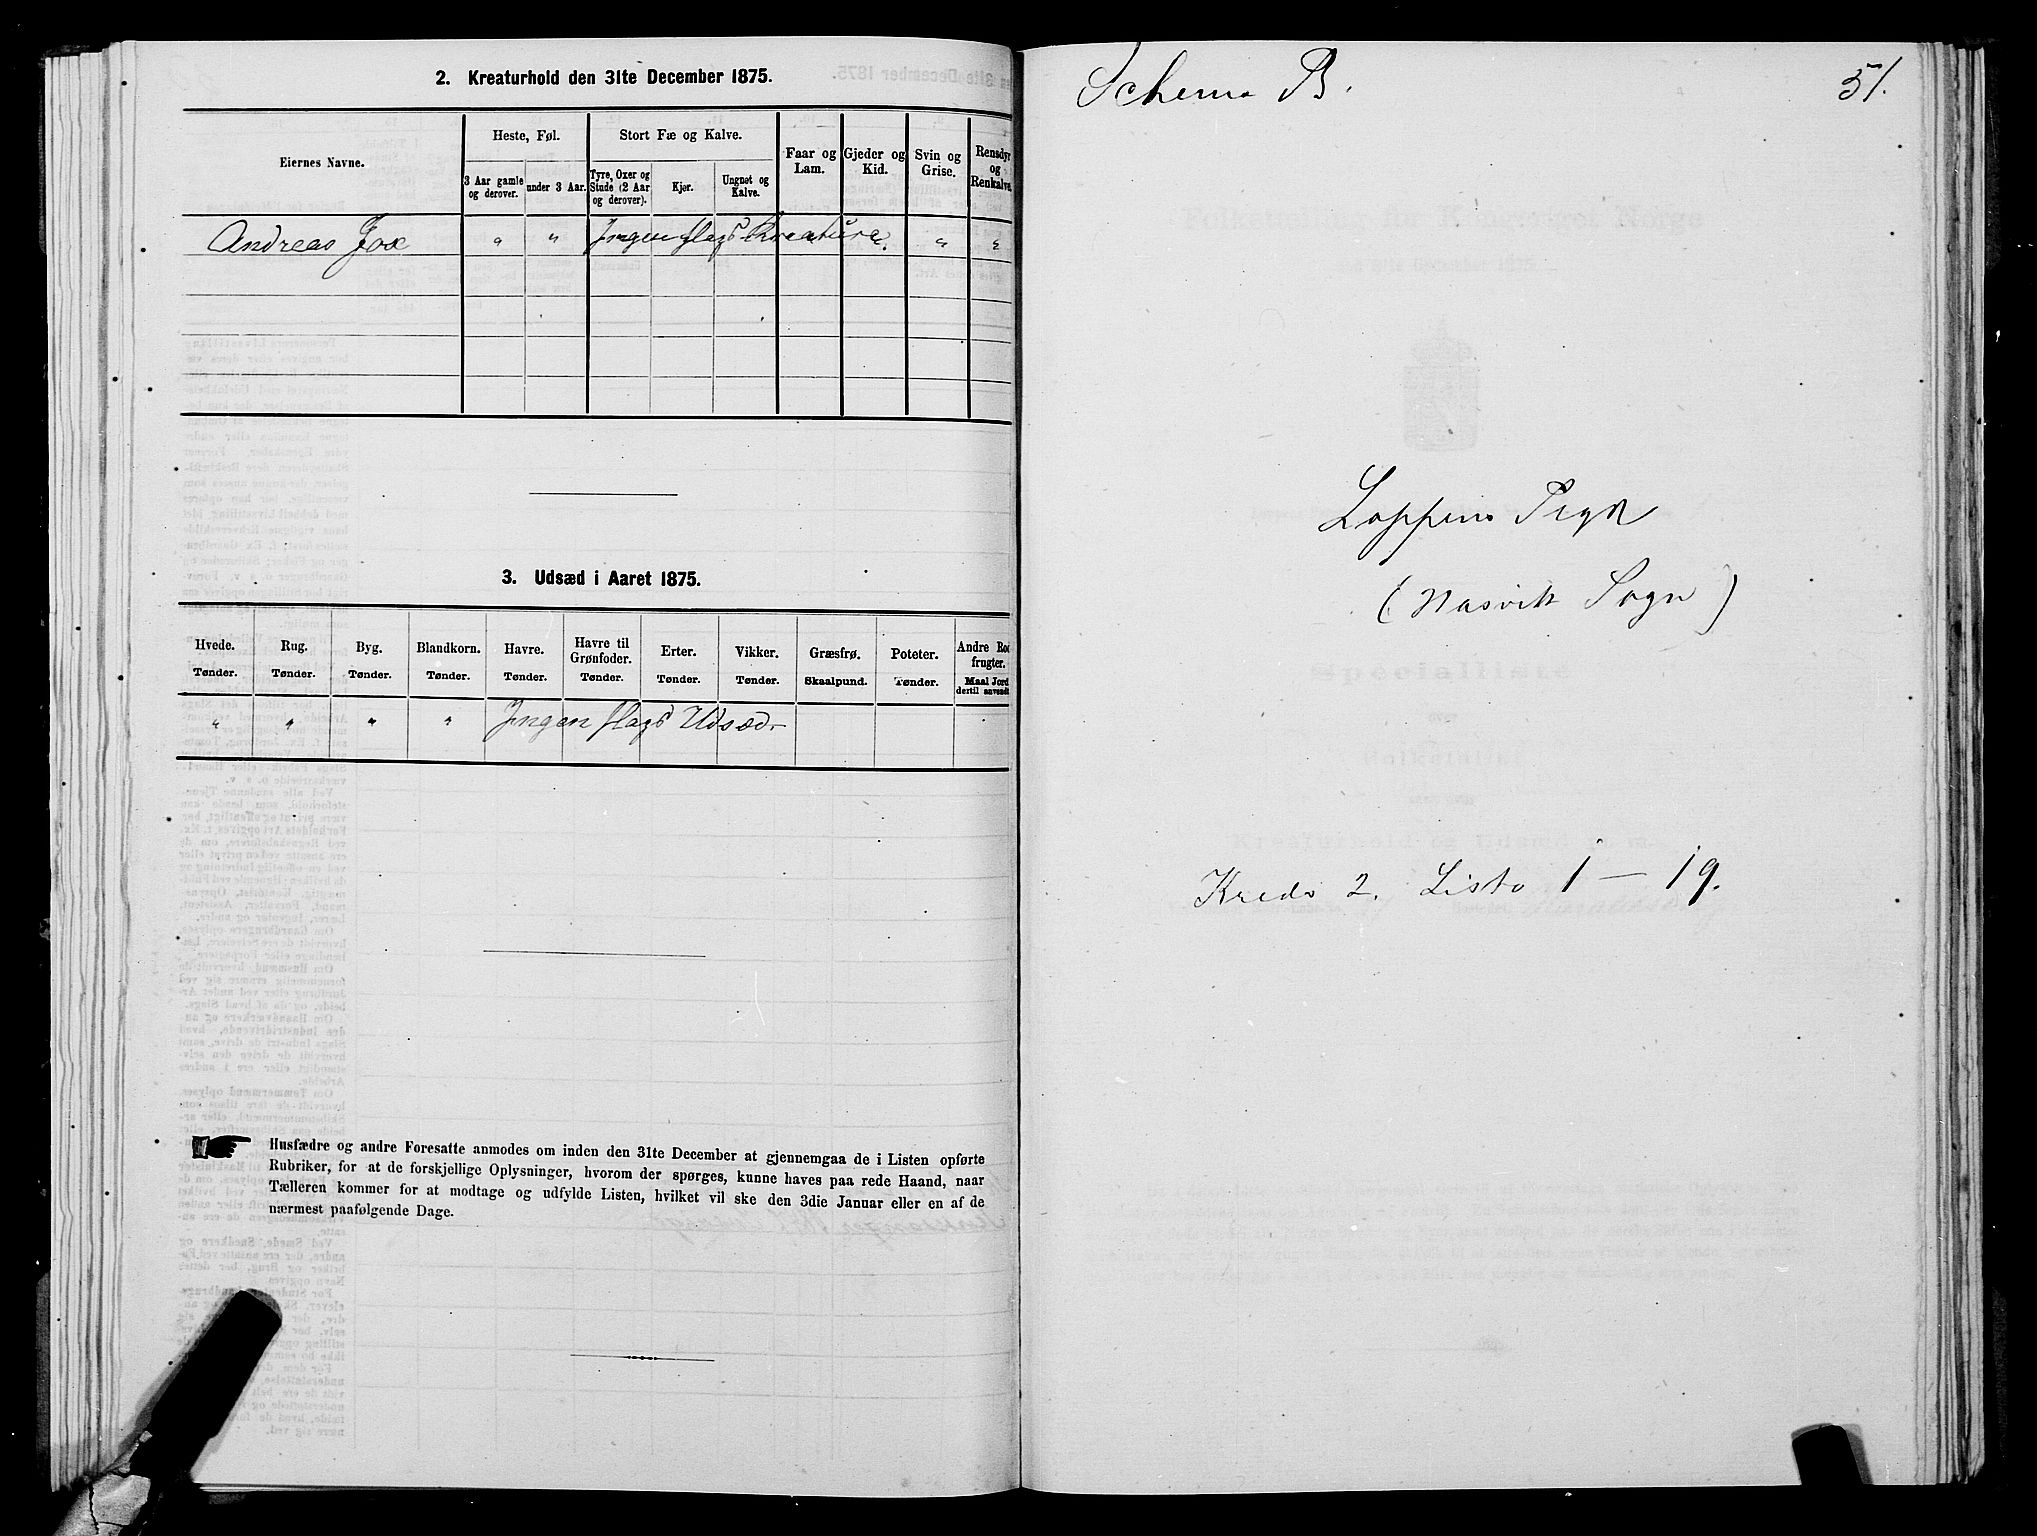 2. Kreaturhold den 31te December 1875.
Eiernes Navne.
Heste, Føl.
Stort Fæ og Kalve.
Faar og Lam.
Gjeder og Kid.
Svin og Grise.
Rensdyr og Renkalve.
3 Aar gamle og derover.
under 3 Aar.
Tyre, Oxer og Stude (2 Aar og derover).
Kjør.
Ungnøt og Kalve.
Andreas Fox " " Ingen slags Kreature. " "
3. Udsæd i Aaret 1875.
Hvede. Rug. Byg. Blandkorn. Havre. Havre til Grønfoder. Erter. Vikker. Græsfrø. Poteter. Andre Rodfrugter.
Tønder. Tønder. Tønder. Tønder. Tønder. Tønder. Tønder. Tønder. Skaalpund. Tønder. Maal Jord dertil anvendt
" " " " Ingen slags Udsæd.
Husfædre og andre Foresatte anmodes om inden den 31te December at gjennemgaa de i Listen opførte
Rubriker, for at de forskjellige Oplysninger, hvorom der spørges, kunne haves paa rede Haand, naar
Tælleren kommer for at modtage og udfylde Listen, hvilket vil ske den 3die Januar eller en af de
nærmest paafølgende Dage.
Schema B.
51.
Loppens Pgd
(Hasvik Sogn)
Kreds 2. Liste 1 — 19.